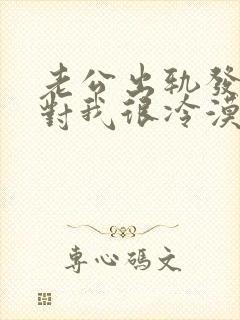 老公出轨發
對我很冷漠
專心碼文